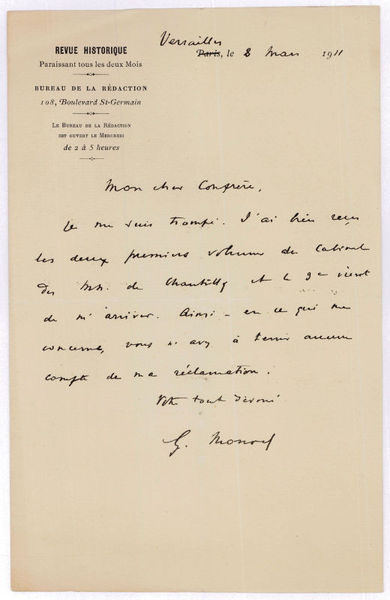 REVUE HISTORIQUE
Paraissant tous les deux Mois
BUREAU DE LA RÉDACTION
108, Boulevard St-Germain
LE BUREAU DE LA RÉDACTION
EST OUVERT LE MERCREDI
de 2 à 5 heures
Versailles
Paris, le 8 Mars 1911
Mon cher Confrère,
Je me suis trompé. J'ai bien reçu
les deux premiers volumes du Cabinet
des Mss. de Chantilly et le 3e vient
de m'arriver. Ainsi - en ce qui me
concerne, vous n'avez à tenir aucun
compte de ma réclamation.
Votre tout dévoué
G. Monod